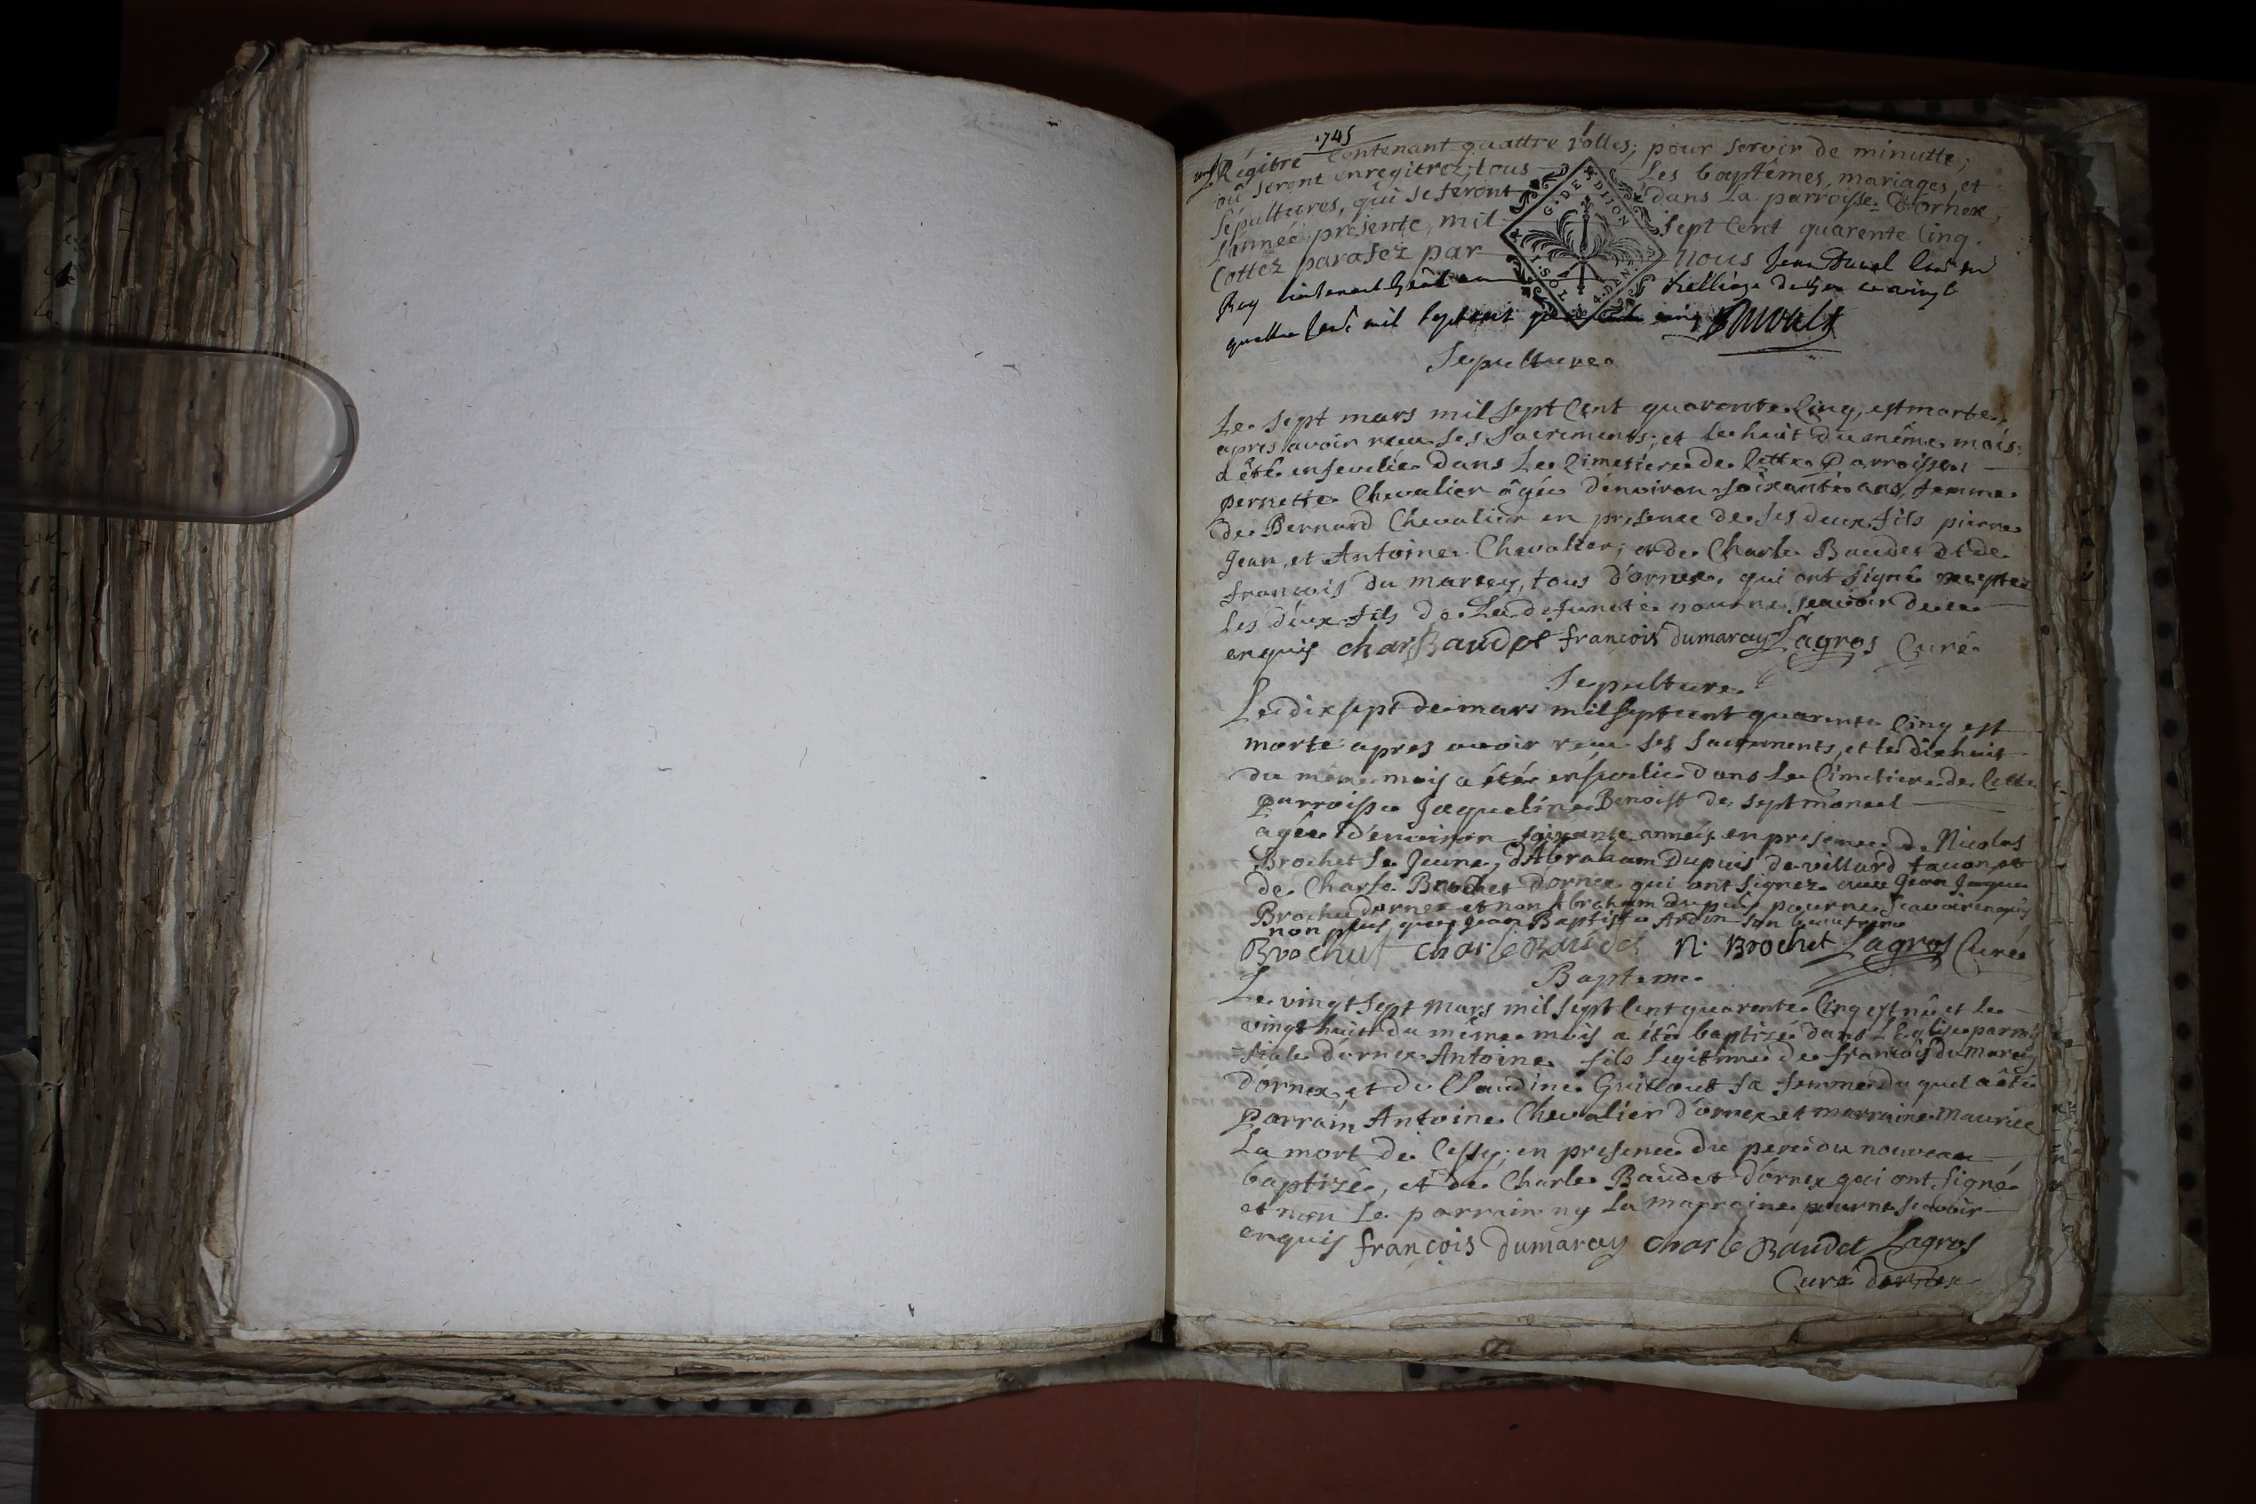 1745
Régitre Contenant quattre rolles, pour servir de minutte,
où seront enregitrez, tous Les baptêmes, mariages, et
sépultures, qui se feront dans La parroisse D'ornex,
L'année présente, mil sept Cent quarente Cinq.
Cottez parafez par nous Jean Duval
Roy Lieutenant vingt
quattre mil sept cent cinq Duval
G. DE DIJON
Sepulture
Le sept mars mil sept Cent quarente Cinq, est morte
apres avoir receu ses Sacrements; et le huit du même mois
a été ensevelie dans Le Cimetiere de Cette Parroisse
pernette Chevalier âgée d'environ soixante ans, femme
de Bernard Chevalier en présence de ses deux fils pierre
Jean, et Antoine Chevalier; et de Charle Baudet et de
françois du marcey, tous d'ornex, qui ont signé exceptez
Les deux fils de La defuncte pour ne scavoir de ce
enquis char Baudet françois dumaray Lagros Curé
Sepulture
Le dix sept de mars mil sept cent quarente Cinq est
morte apres avoir receu ses sacrements, et le dixhuit
du même mois a été ensevelie dans Le Cimetiere de Cette
parroisse Jaqueline Benoist de septmoncel
âgée d'environ soixante années en presence de Nicolas
Brochet Le Jeune, d'Abraham Dupuis de villard tacon et
de Charle Brochet d'ornex qui ont signez avec Jean Jaque
Brochu d'ornex et non Abraham dupuis pour ne scavoir enquis
non plus que Jean Baptiste Ardin son beaufrere
Brochut charle Baudet N. Brochet Lagros Curé
Bapteme
Le vingt sept mars mil sept Cent quarente Cinq est né et le
vingt huit du même mois a été baptizé dans L'Eglise parrois
-siale d'ornex Antoine fils Legitime de françois du marcey
d'ornex, et de Claudine Guillout sa femme du quel a été
parrain Antoine Chevalier d'ornex et marraine Maurice
La mort de Cessy; en presence du pere du nouveau
baptizé, et de Charle Baudet d'ornex qui ont signé
et non Le parrain ny La marraine pour ne scavoir
enquis françois dumaray charle Baudet Lagros
Curé d'ornex